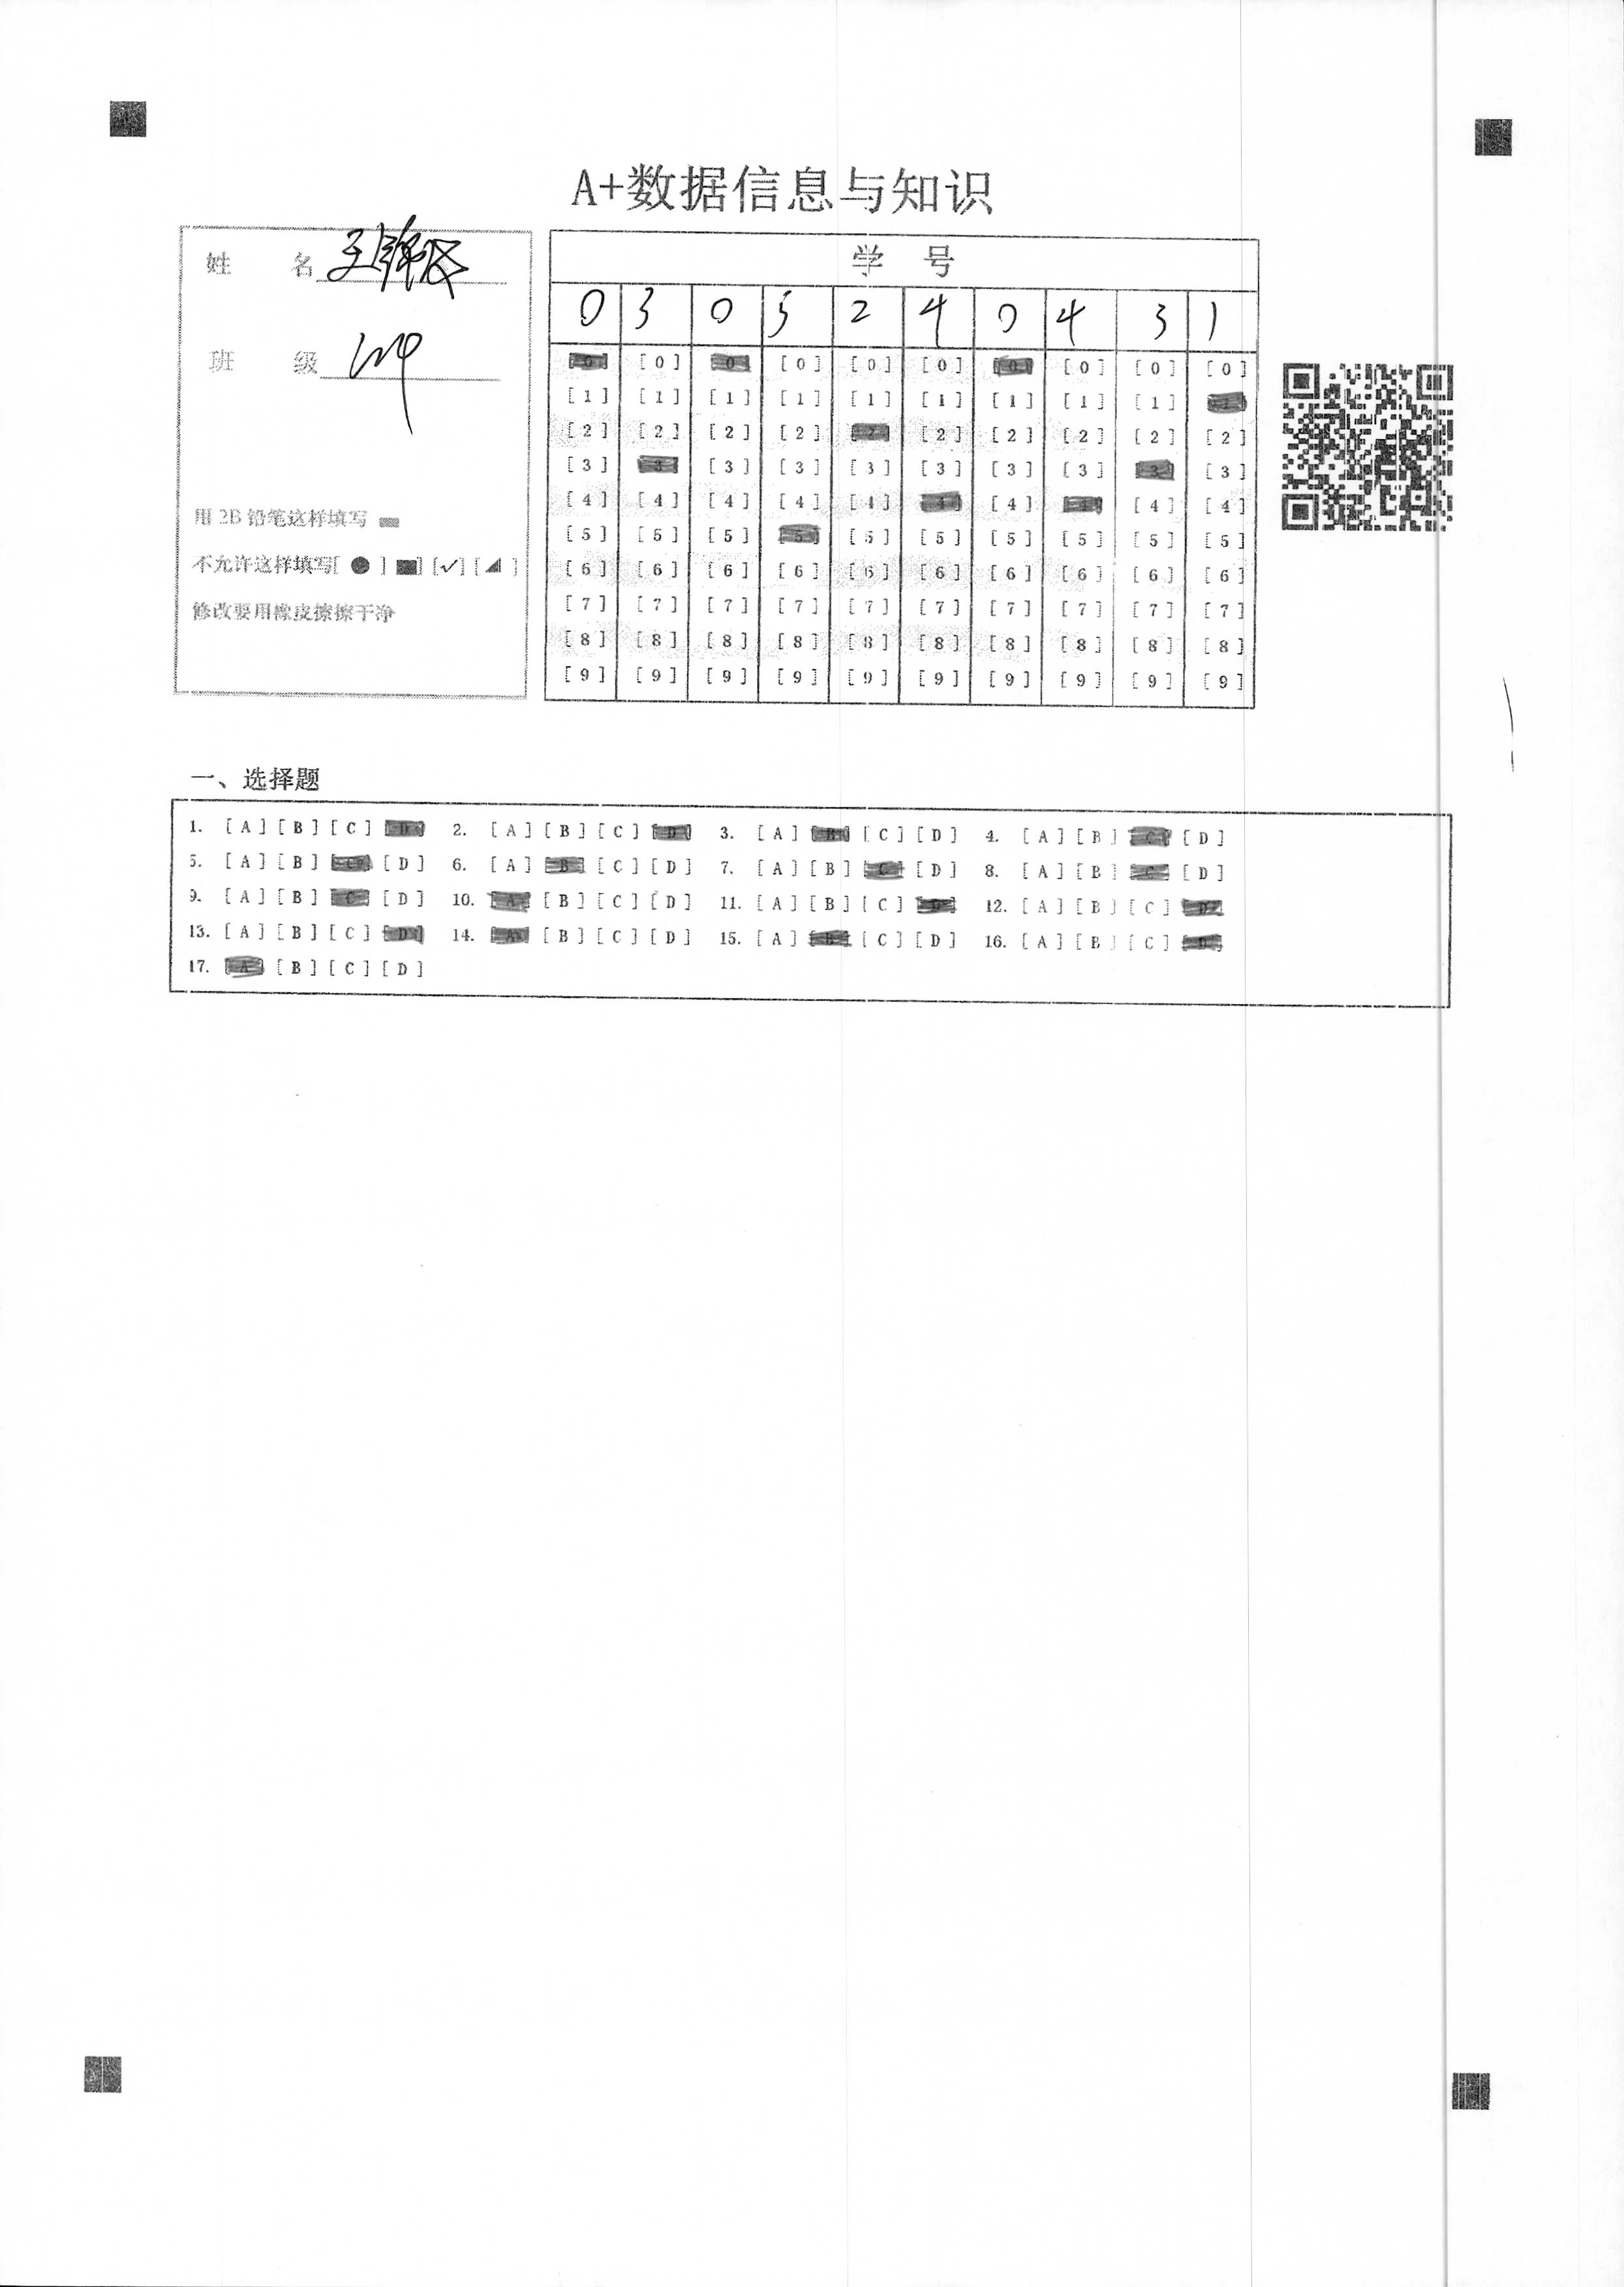 A+数据信息与知识
姓 名 王
班 级
用 2B 铅笔这样填写
不允许这样填写[ ● ] [■] [✓] [◢ ]
修改要用橡皮擦擦干净
学 号
0 3 0 5 2 4 0 4 3 1
[0] [0] [0] [0] [0] [0] [0] [0] [0] [0]
[1] [1] [1] [1] [1] [1] [1] [1] [1] [1]
[2] [2] [2] [2] [2] [2] [2] [2] [2] [2]
[3] [3] [3] [3] [3] [3] [3] [3] [3] [3]
[4] [4] [4] [4] [4] [4] [4] [4] [4] [4]
[5] [5] [5] [5] [5] [5] [5] [5] [5] [5]
[6] [6] [6] [6] [6] [6] [6] [6] [6] [6]
[7] [7] [7] [7] [7] [7] [7] [7] [7] [7]
[8] [8] [8] [8] [8] [8] [8] [8] [8] [8]
[9] [9] [9] [9] [9] [9] [9] [9] [9] [9]
一、选择题
1. [A] [B] [C] [D] 2. [A] [B] [C] [D] 3. [A] [B] [C] [D] 4. [A] [B] [C] [D]
5. [A] [B] [C] [D] 6. [A] [B] [C] [D] 7. [A] [B] [C] [D] 8. [A] [B] [C] [D]
9. [A] [B] [C] [D] 10. [A] [B] [C] [D] 11. [A] [B] [C] [D] 12. [A] [B] [C] [D]
13. [A] [B] [C] [D] 14. [A] [B] [C] [D] 15. [A] [B] [C] [D] 16. [A] [B] [C] [D]
17. [A] [B] [C] [D]